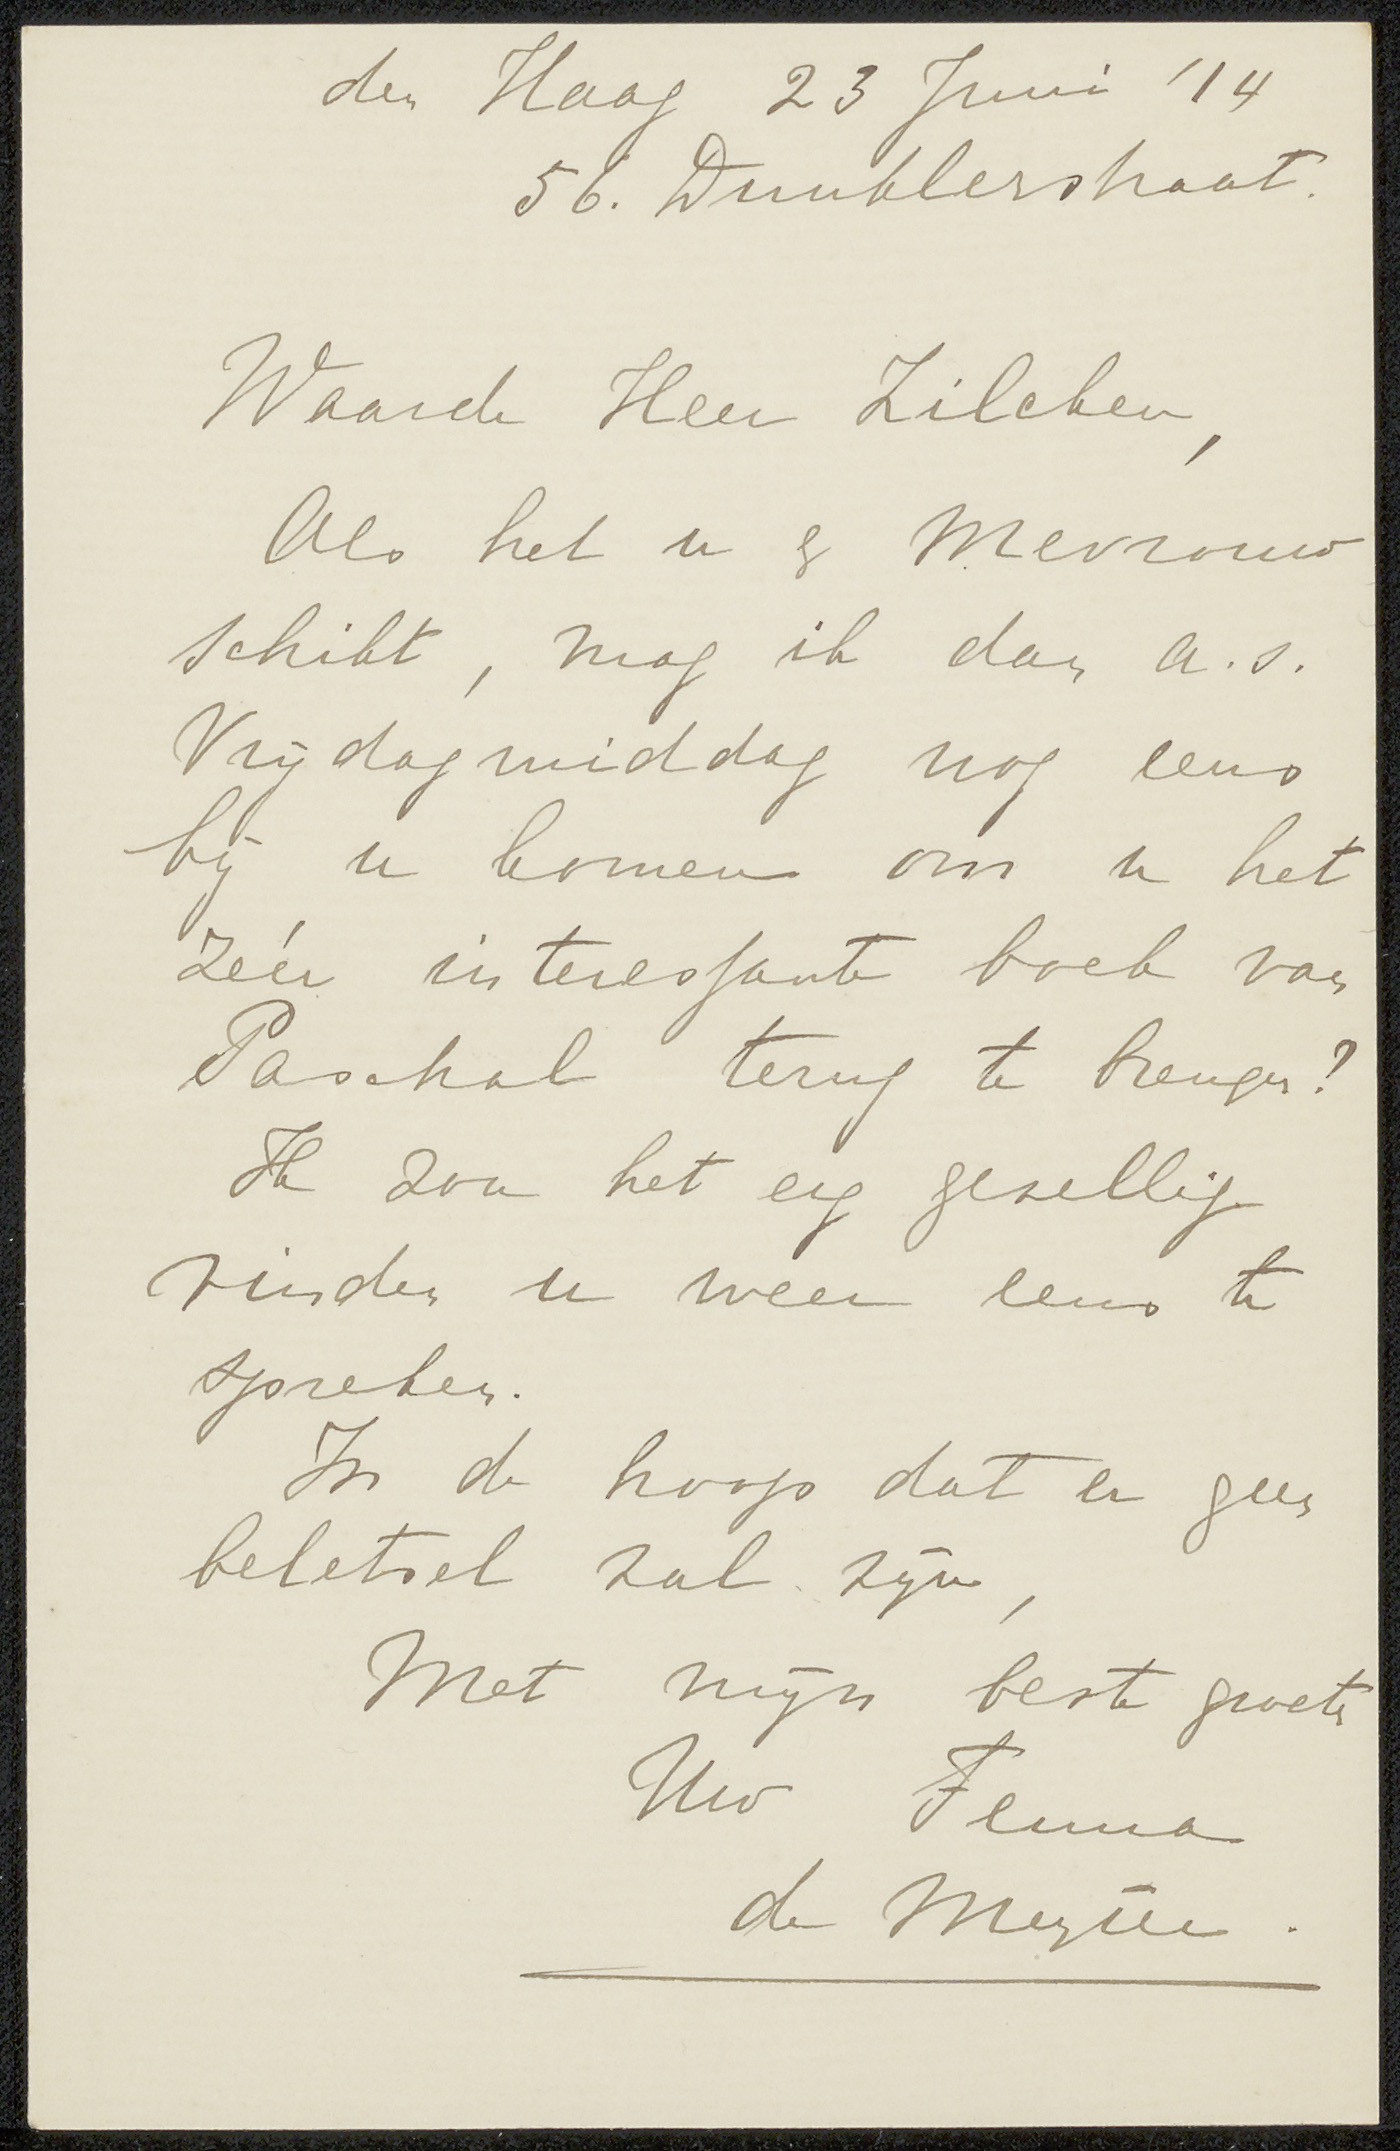 den Haag 23 Juni '14
56. Dunklerstraat.
Waarde Heer Zilcken,
Als het u & Mevrouw
schikt, mag ik dan a.s.
Vrijdagmiddag nog eens
bij u komen om u het
zéér interessante boek van
Paschal terug te brengen?
Ik zou het erg gezellig
vinden u weer eens te
spreken.
In de hoop dat er geen
beletsel zal zijn,
Met mijn beste groeten
Uw Fenna
de Meyier.